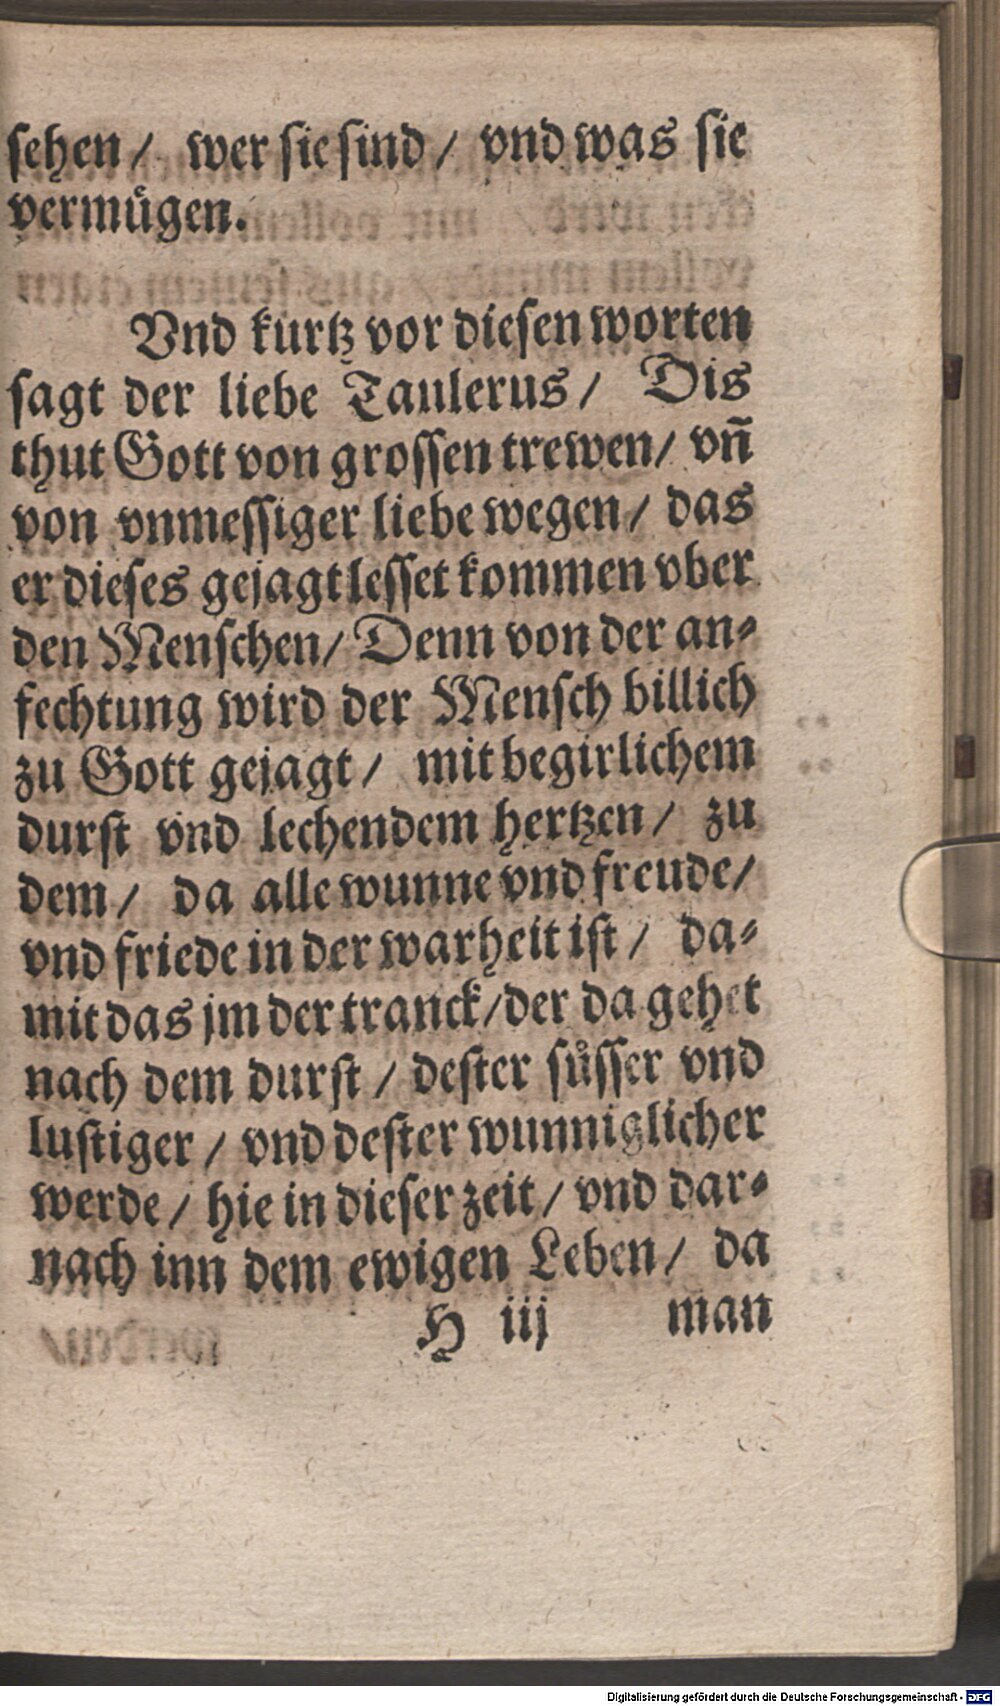 sehen / wer sie sind / vnd was sie
vermuͤgen.
Vnd kurtz vor diesen worten
sagt der liebe Taulerus / Dis
thut Gott von grossen trewen / vñ
von vnmessiger liebe wegen / das
er dieses gejagt lesset kommen vber
den Menschen / Denn von der an⸗
fechtung wird der Mensch billich
zu Gott gejagt / mit begirlichem
durst vnd lechendem hertzen / zu
dem / da alle wunne vnd freude /
vnd friede in der warheit ist / da⸗
mit das jm der tranck / der da gehet
nach dem durst / dester suͤsser vnd
lustiger / vnd dester wunniglicher
werde / hie in dieser zeit / vnd dar⸗
nach inn dem ewigen Leben / da
H iij man
Digitalisierung gefördert durch die Deutsche Forschungsgemeinschaft - DFG